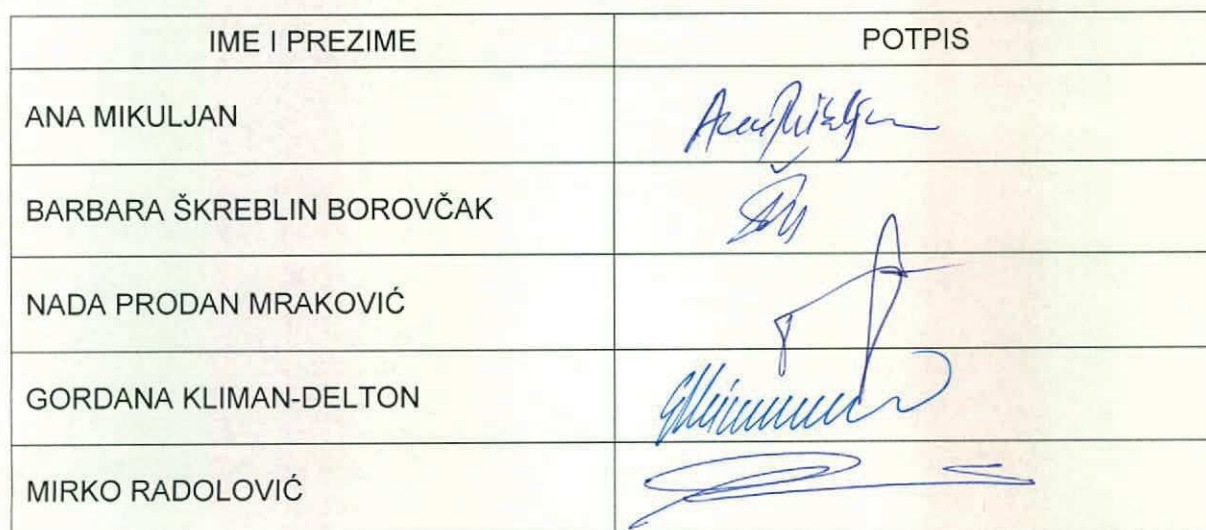 IME I PREZIME POTPIS
ANA MIKULJAN
BARBARA ŠKREBLIN BOROVČAK
NADA PRODAN MRAKOVIĆ
GORDANA KLIMAN-DELTON
MIRKO RADOLOVIĆ